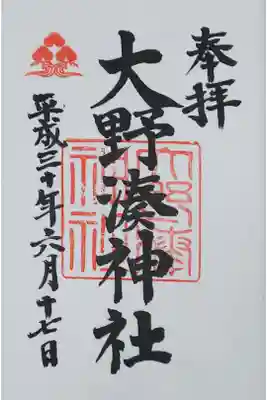 奉拝
大野湊神社
平成三十年六月十七日